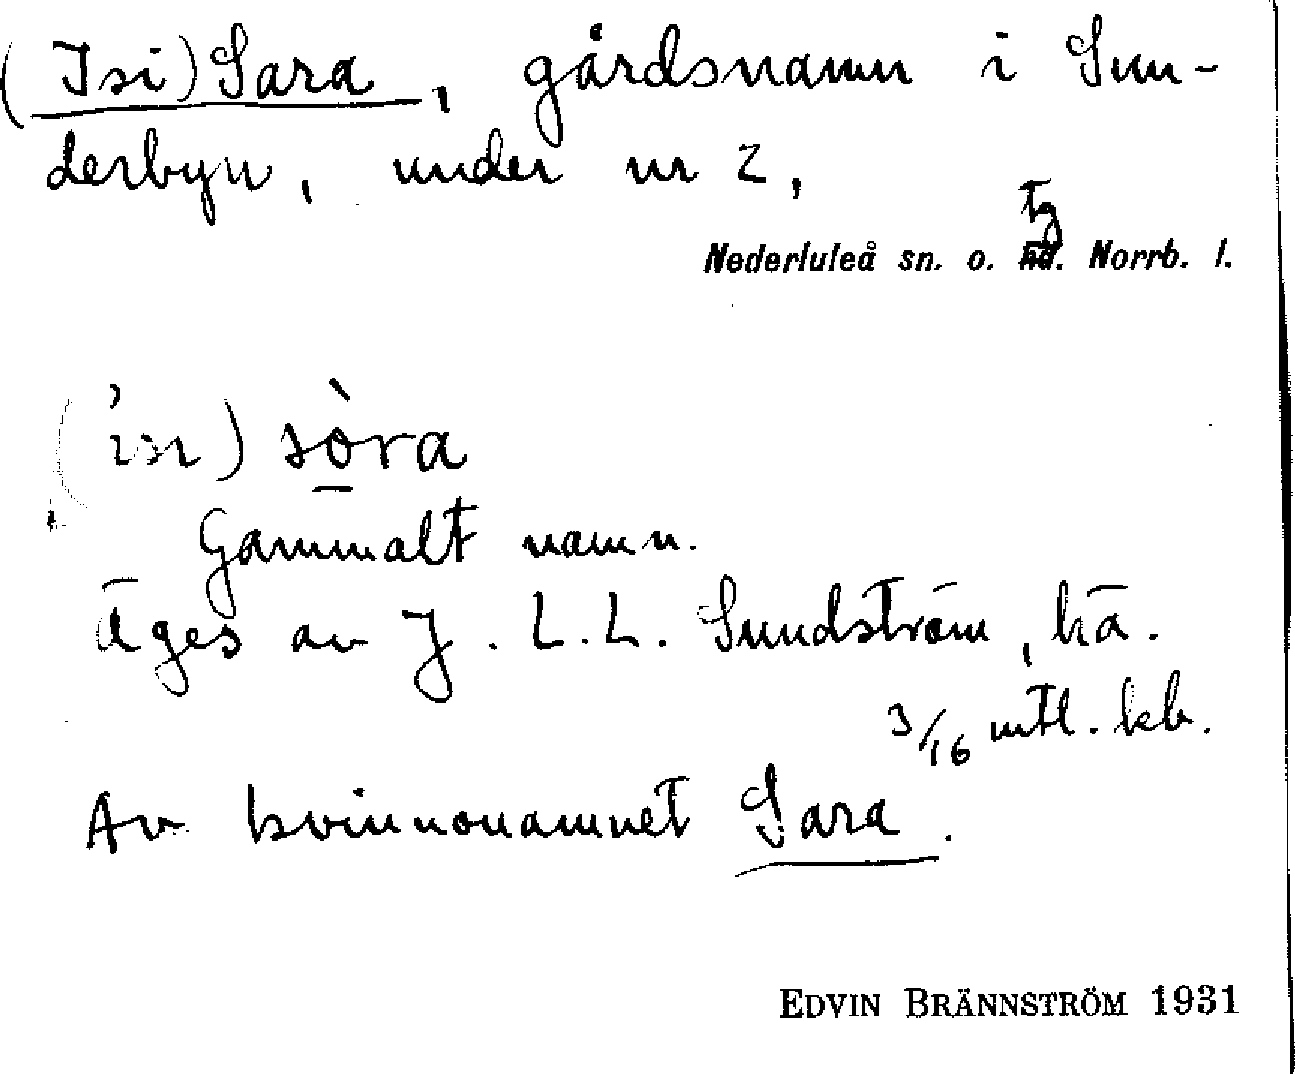 (Isi) Sara, gårdsnamn i Sun-
derbyn, under nr 2,
tg
Nederluleå sn. o. hd. Norrb. l.
(ʹısı) sòra
Gammalt namn.
Äges av J. L. L. Sundström, hä.
3/16 mtl. kb.
Av kvinnonamnet Sara.
EDVIN BRÄNNSTRÖM 1931